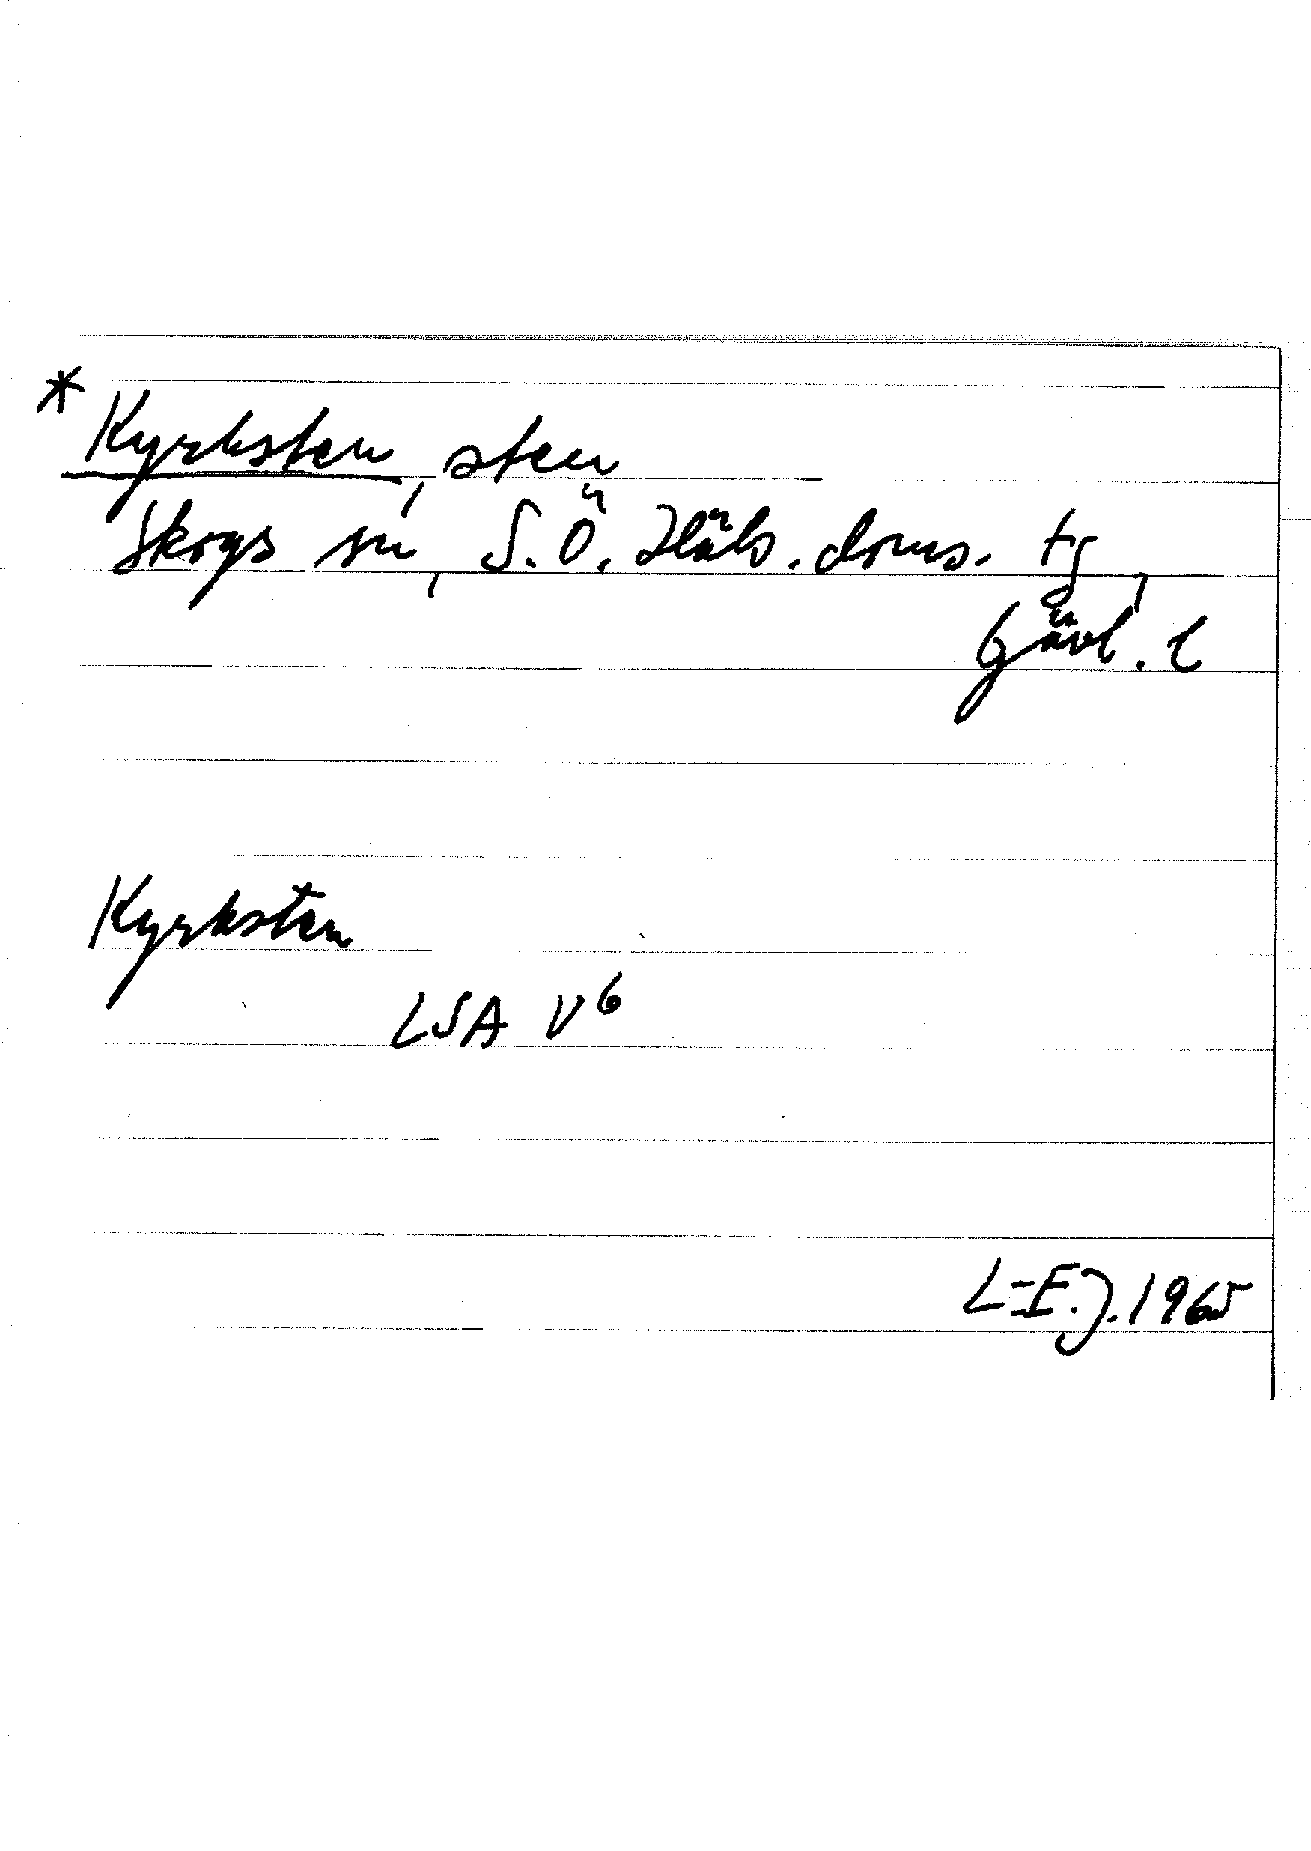 * Kyrksten, sten
Skogs sn, S.Ö. Häls. doms. tg,
Gävl. l
Kyrksten
LSA V6
L-E.J. 1965